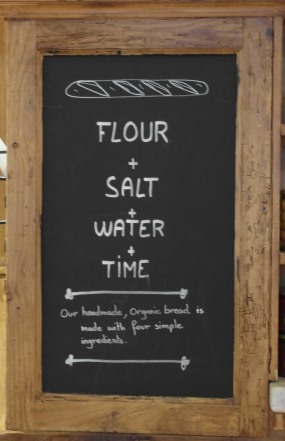 FLOUR
+
SALT
+
WATER
+
TIME
Our handmade, Organic bread is
made with four simple
ingredients.